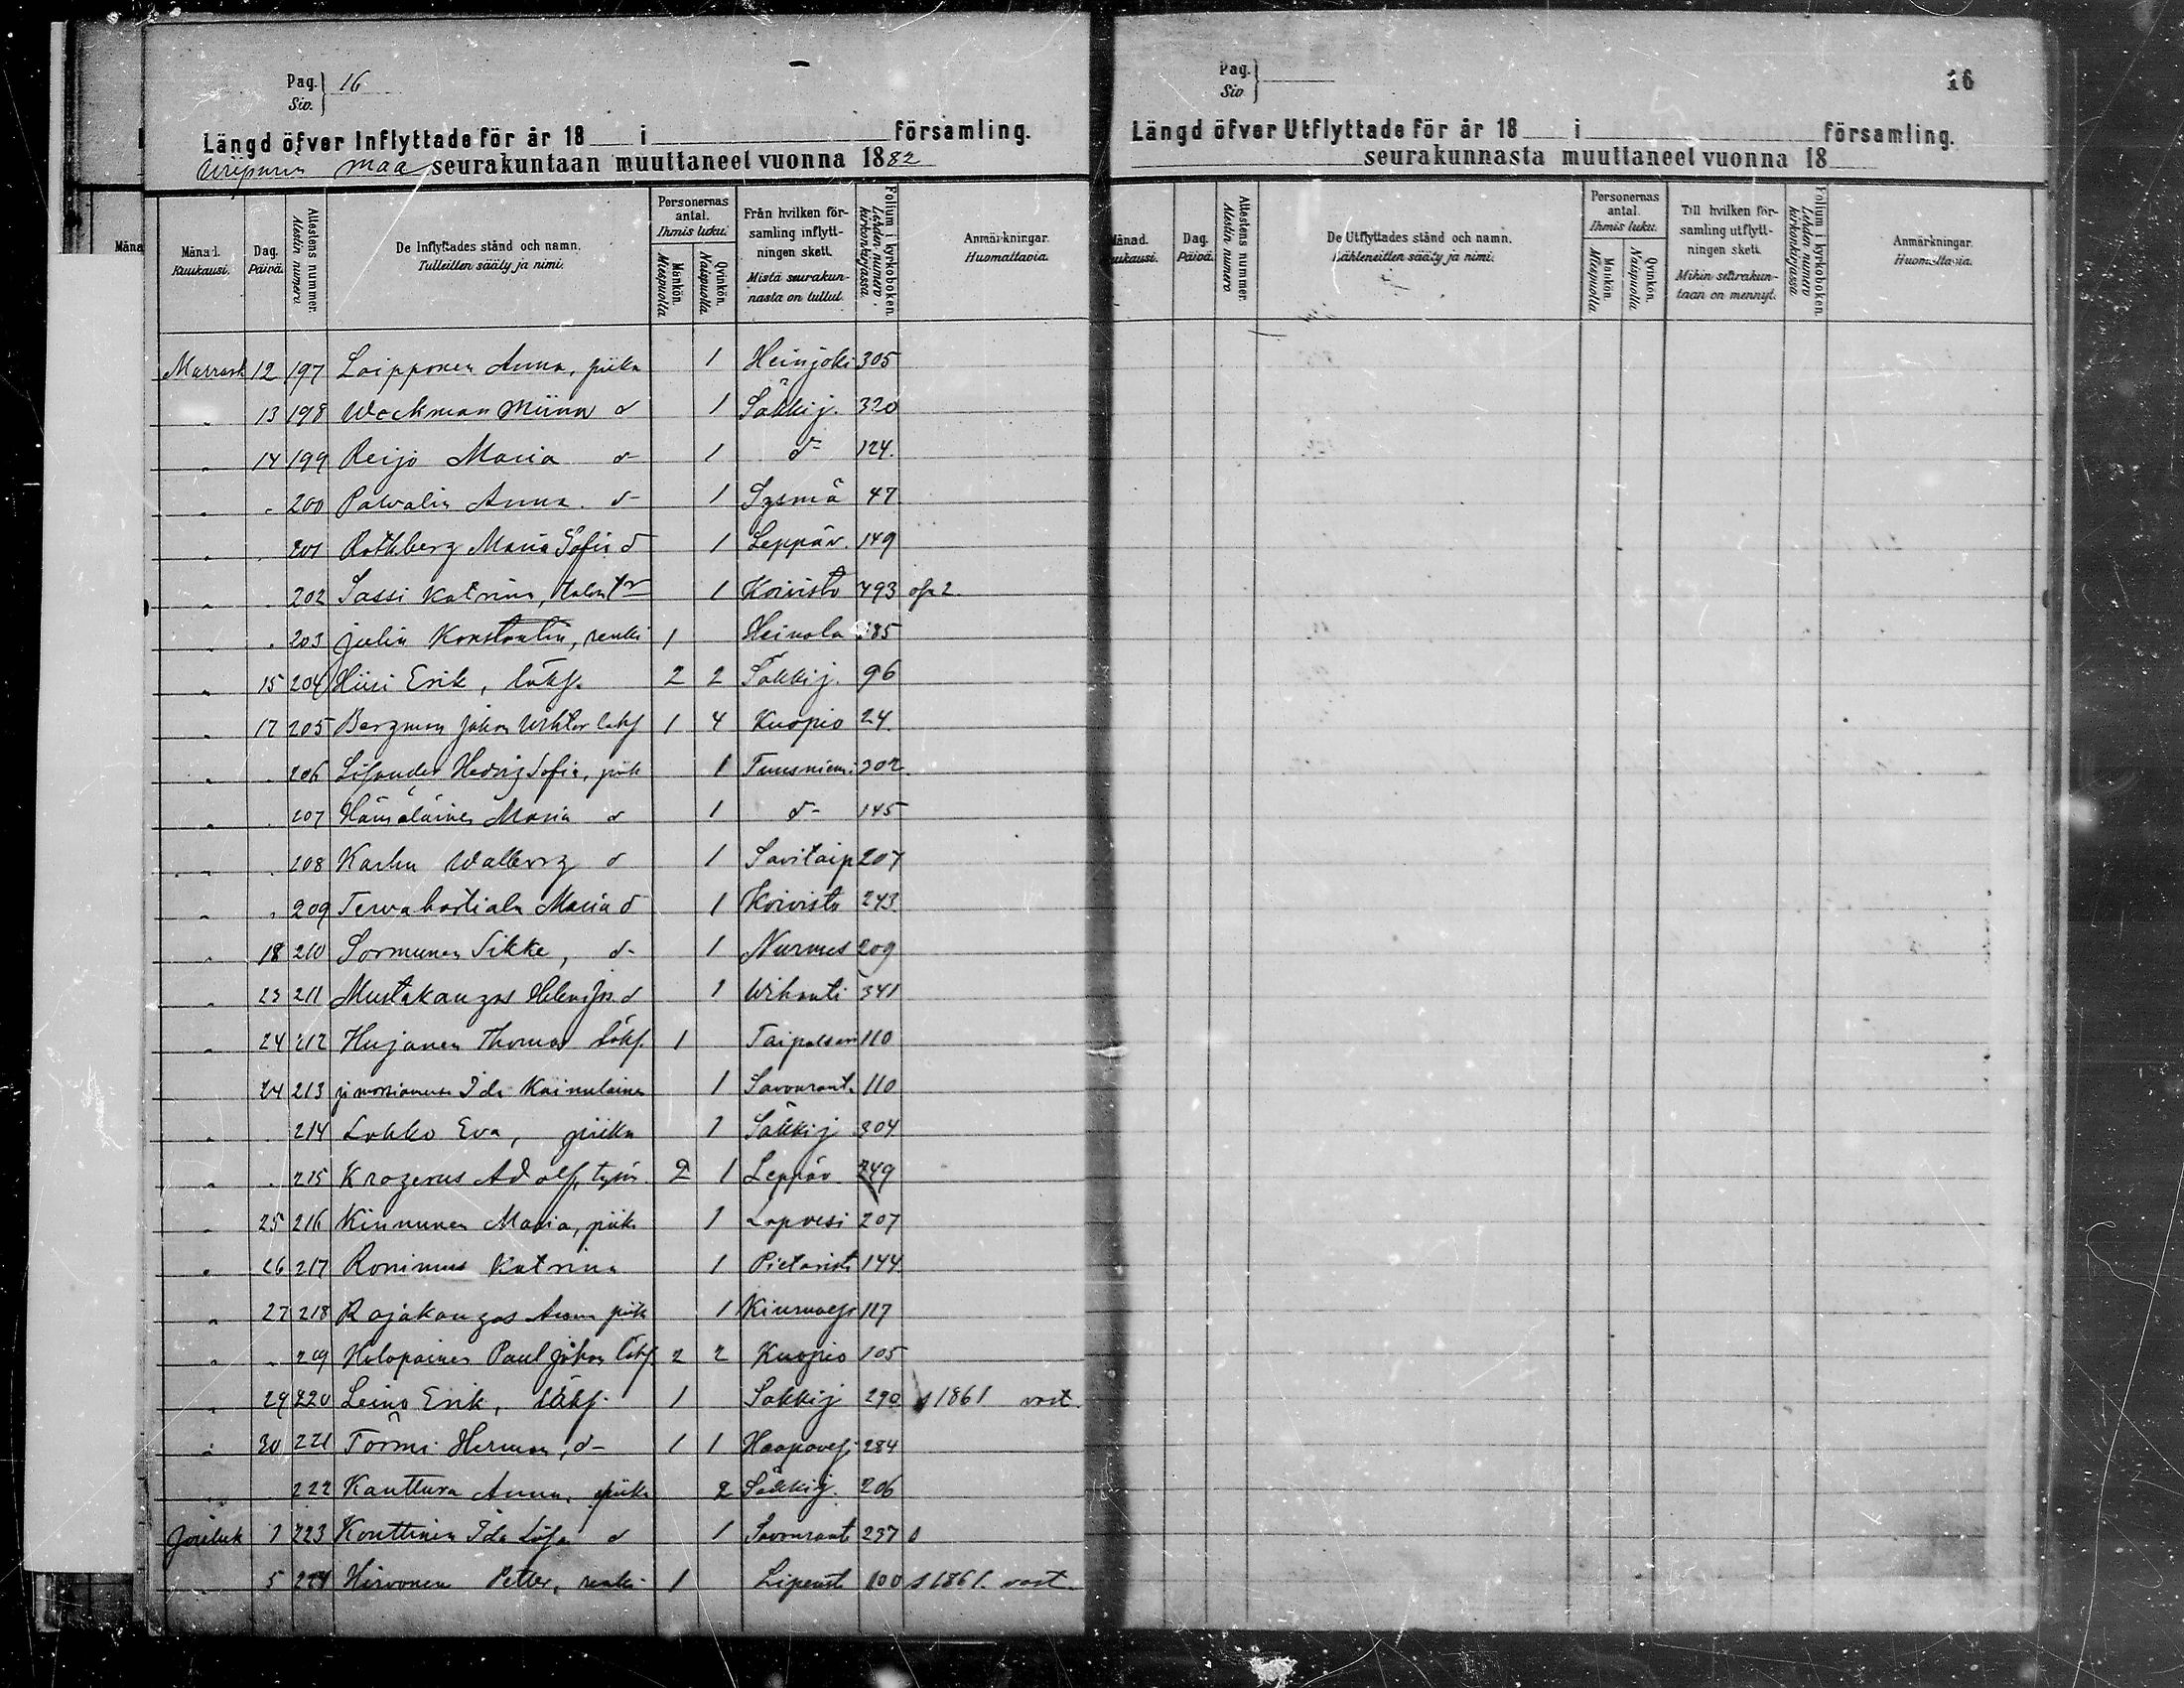 Pag. Siv. 16
Längd öfver Inflyttade för år 18 i församling.
Wiipurin maa seurakuntaan muuttaneet vuonna 1882
Månad. Kuukausi. Dag. Päivä. Attestens nummer. Atestin numero. De Inflyttades stånd och namn. Tulleitten sääty ja nimi. Personernas antal. Ihmis luku. Mankön. Miespuolia Qvinkön. Naispuolia Från hvilken församling inflyttningen skett. Mistä seurakunnasta on tullut. Folium i kyrkoboken. Lehden numero kirkonkirjassa. Anmärkningar. Huomattavia.
Marrask 12 197 Loipponen Anna, piika 1 Heinjoki 305
" 13 198 Weckman Miina d 1 Säkkij. 320
" 14 199 Reijo Maria d 1 d 124.
" " 200 Parvalin Anna d 1 Sysmä 47
" " 201 Rothberg Maria Sofia d 1 Leppäv. 149
" " 202 Sassi Katrina, 1 Koivisto 493
" " 203 Julin Konstantin, renki 1 Heinola 185
" 15 204 Hiisi Erik, lökf. 2 2 Säkkij. 96
" 17 205 Bergman Johan Wiktor lökf 1 4 Kuopio 24.
" " 206 Hedvig Sofia, piik 1 Tuusniemi 302
" " 207 Hämäläinen Maria d 1 d 145
" " 208 Karhu Walborg d 1 Savitaip 207
" " 209 Maria d 1 Koivisto 243
" 18 210 Sormunen Sikke, d 1 Nurmes 209
" 23 211 Mustakangas d 1 Wihanti 341
" 24 212 Hujanen Thomas lökf. 1 Taipalsaari 110
24 213 Ida Kainulainen 1 Savonrant. 110
" " 214 Lohko Eva, piika 1 Säkkij 304
" " 215 Krogerus Adolf, työm. 2 1 Leppäv. 249
" 25 216 Kinnunen Maria, piika 1 Lapvesi 207
" 26 217 Ronimus Katrina 1 144
" 27 218 Rajakangas Anna piik 1 117
" " 219 Holopainen Paul Johan lökf 2 2 Kuopio 105
" 29 220 Leino Erik, lökf. 1 Säkkij 290 s 1861 vast.
" 30 221 Törmi Herman, d 1 1 Haapavesi 284
" 222 Kanttura Anna, piika 2 Säkkij. 206
Jouluk 1 223 Konttinen Ida d 1 Savonrant 237
" 5 224 Hirvonen Petter, renki 1 100 s 1861. vast.
Pag. Siv 16
Längd öfver Utflyttade för år 18 i församling.
seurakunnasta muuttaneet vuonna 18
Månad. Kuukausi. Dag. Päivä. Attestens nummer. Atestin numero De Utflyttades stånd och namn. Lähteneitten sääty ja nimi. Personernas antal. Ihmis luku. Mankön. Miespuolia Qvinkön. Naispuolia Till hvilken församling utflyttningen skett. Mihin seurakuntaan on mennyt. Folium i kyrkoboken. Lehden numero kirkonkirjassa. Anmärkningar. Huomattavia.